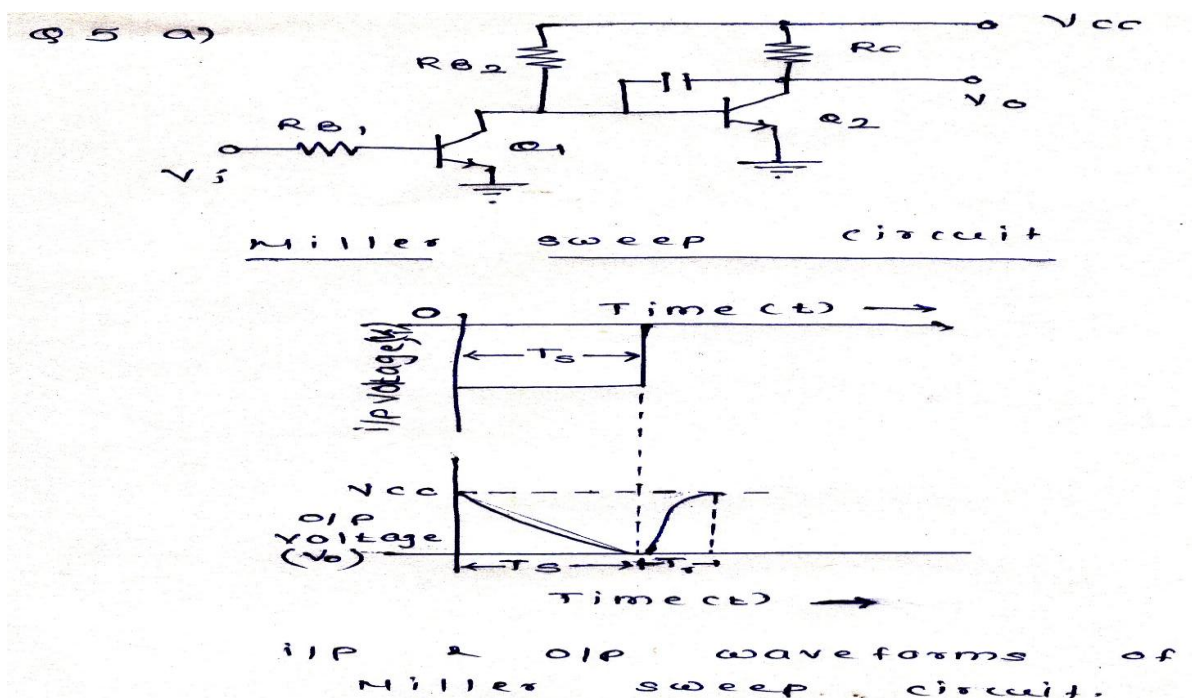 Q 5 a)
Vcc
RB2
Rc
Vo
RB1
Q1
Q2
Vi
Miller sweep circuit
O
Time (t) →
i/p voltage(Vi)
Ts
Vcc
o/p
voltage
(Vo)
Ts
Tr
Time(t) →
i/p & o/p waveforms of
Miller sweep circuit.